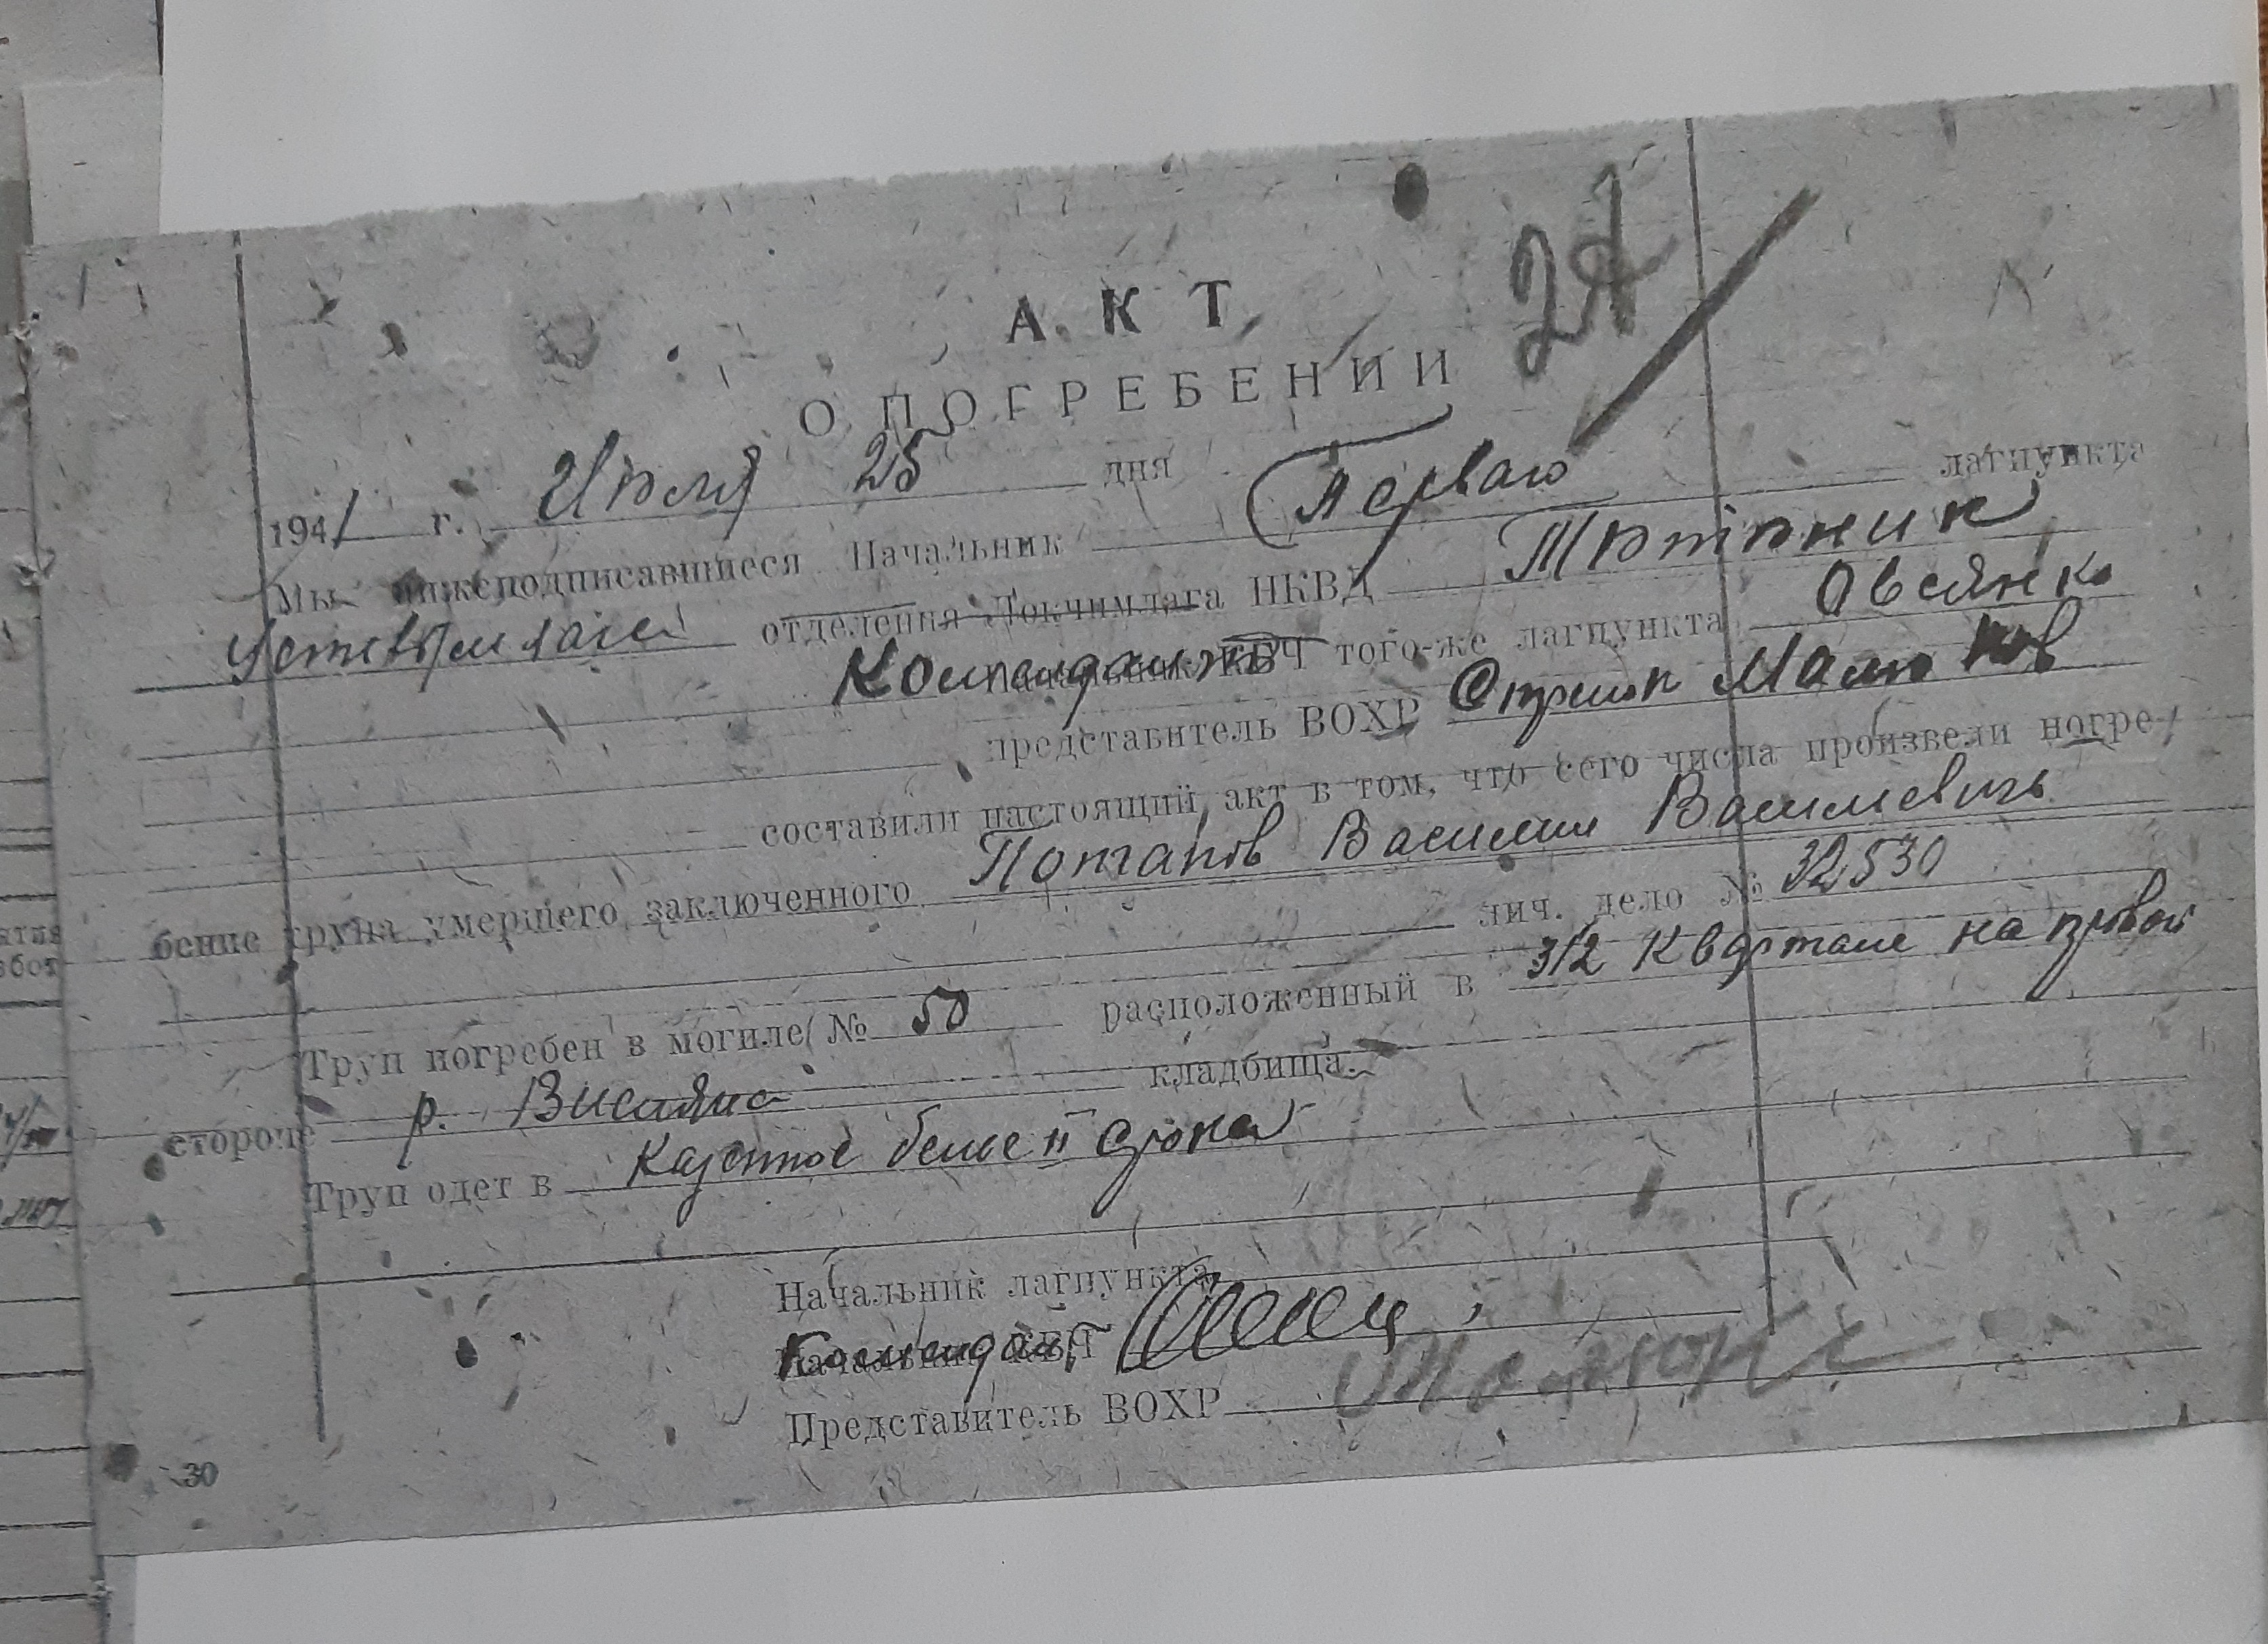 27
АКТ
О ПОГРЕБЕНИИ
1941 г. Июля 25 дня
Мы нижеподписавшиеся Начальник Первого лагпункта
Устьвымлага отделения Локчимлага НКВД Тютюник
Комендант Начальник КВЧ того-же лагпункта Овсянко
представитель ВОХР Стрелок Малюков
составили настоящий акт в том, что сего числа произвели погре-
бение трупа умершего заключенного Потапов Василий Василиевичь
лич. дело № 32530
Труп погребен в могиле № 50 расположенный в 312 Квартале на правой
стороне р. Висляна кладбища.
Труп одет в Казенное белье II срока
Начальник лагпункта
Комендант Начальник КВЧ
Представитель ВОХР
30